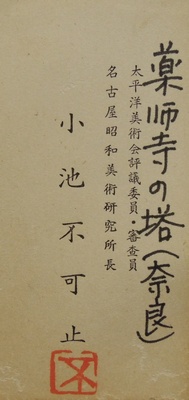 薬師寺の塔(奈良)
太平洋美術会評議委員・審査員
名古屋昭和美術研究所長
小池不可止